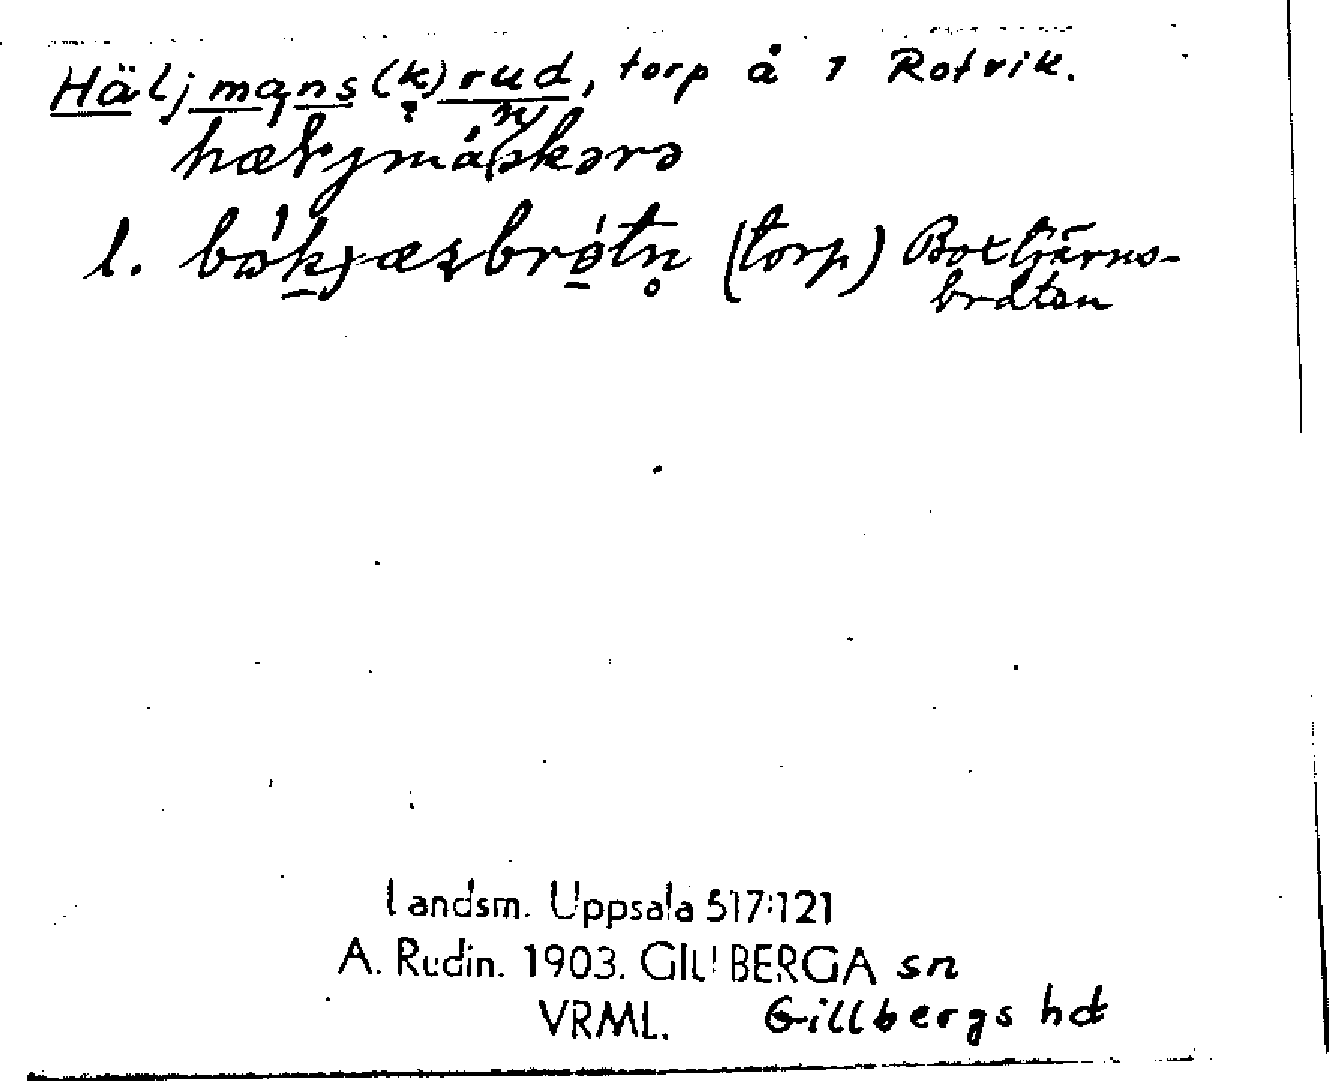 Häljmans(k)rud, torp å 1 Rotvik.
l. (torp) Boxtjärns-
bråten
Landsm. Uppsala 517:121
A. Rudin. 1903. GILLBERGA sn
VRML. Gillbergs hd